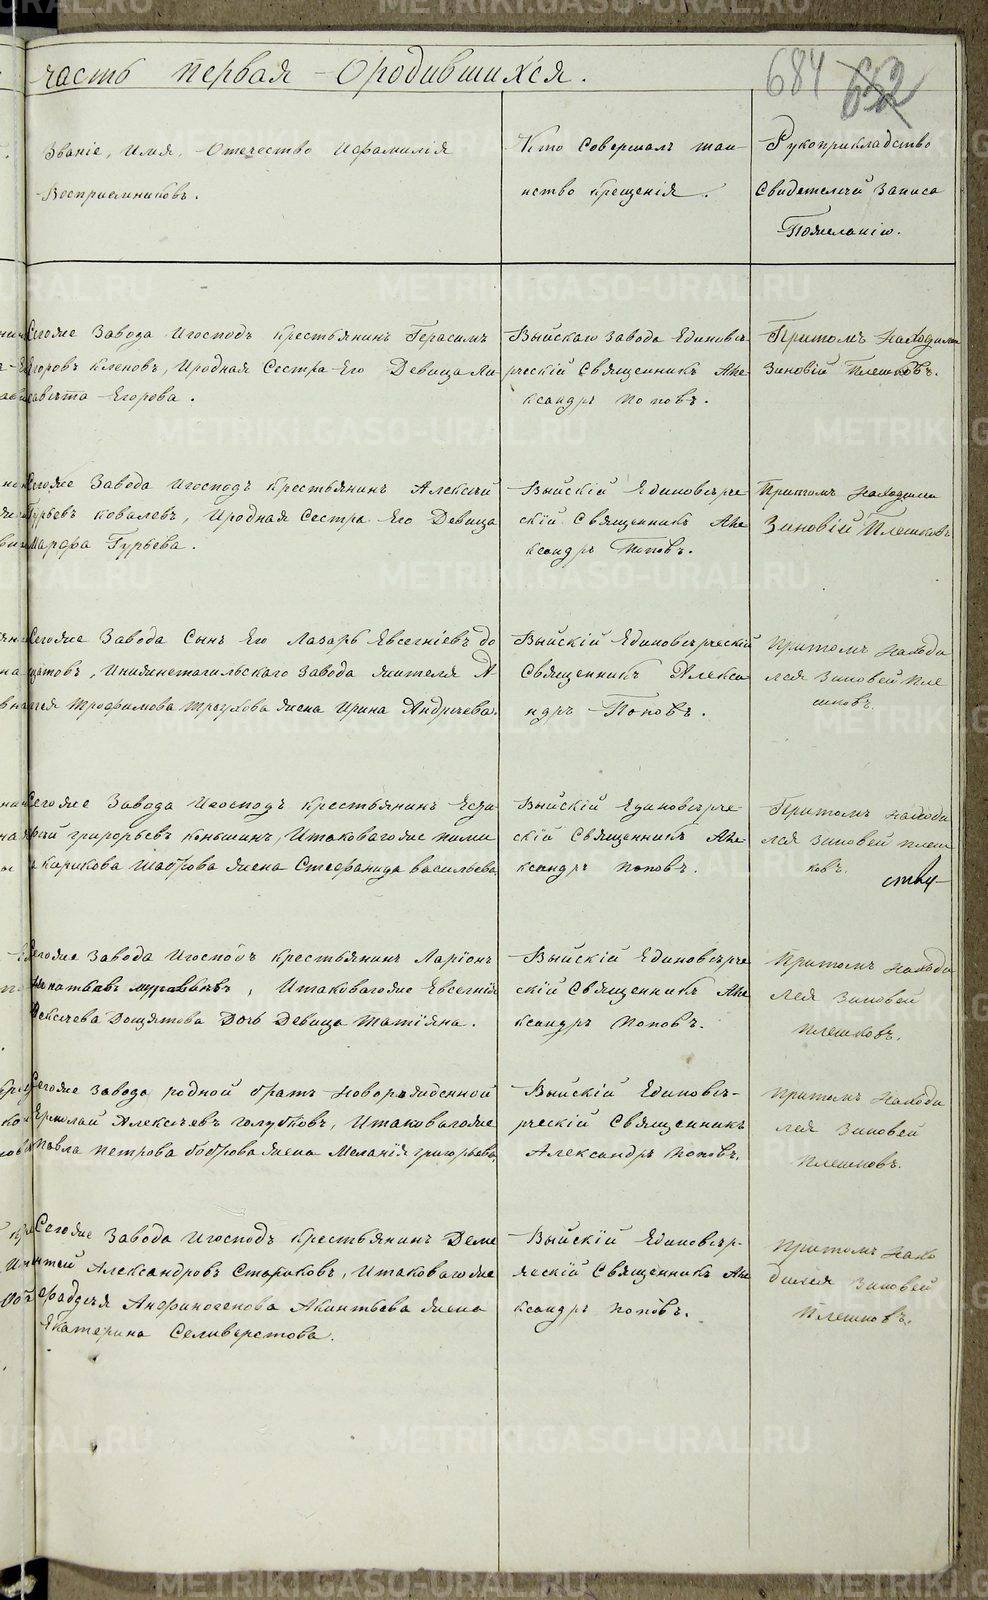 часть первая - О родившихся.
684 652
Званіе, Имя, Отечество Ифамилія
Воспріемниковъ.
Кто Совершалъ таи
нство крещенія.
Рукоприкладство
Свидетелей Записа
Пожеланію.
Сегоже Завода Игосподъ крестьянинъ Герасимъ
Егоровъ Кленовъ, Иродная Сестра Его Девица Ли
савѣта Егорова.
Выйскаго завода Единовѣ
рческій Священникъ Але
ксандръ Поповъ.
Притомъ Находился
Зиновій Плешковъ.
Сегоже Завода Игосподъ Крестьянинъ Алексѣй
Гурьевъ Ковалевъ, Иродная Сестра Его Девица
Марфа Гурьева.
Выйскій Единовѣрче
скій Священникъ Але
ксандръ Поповъ.
Притомъ находился
Зиновій Плешковъ
Сегоже Завода Сынъ Его Лазарь Евсегніевъ До
щатовъ, Инижнетагильскаго Завода жителя
Трофимова Треухова жена Ирина Андреева.
Выйскій Единовѣрческій
Священникъ Алекса
ндръ Поповъ.
Притомъ Находи
лся Зиновей Пле
шковъ.
Сегоже Завода Игосподъ Крестьянинъ
григорьевъ Коньшинъ, Итаковагоже
Шаброва жена Стефанида васильева
Выйскій Единовѣрче
скій Священникъ Але
ксандръ Поповъ.
Притомъ находи
лся Зиновей плеш
ковъ.
Сегоже Завода Игосподъ крестьянинъ Ларіонъ
Игнатьевъ Муравьевъ, Итаковагоже Евсегнія
Алексѣева Дощатова Дочь Девица Татіяна.
Выйскій Единовѣрче
скій Священникъ Але
ксандръ Поповъ.
Притомъ Находи
лся Зиновей
Плешковъ.
Сегоже Завода родной братъ Новорожденной
Ермолай Алексѣевъ голубковъ, Итаковагоже
Павла петрова боброва жена Меланія григорьева.
Выйскій Единовѣ-
рческій Священникъ
Александръ Поповъ.
Притомъ Находи
лся Зиновей
Плешковъ.
Сегоже Завода Игосподъ крестьянинъ Деме
нтей Александровъ Стариковъ, Итаковагоже
Анфиногенова Акинтьева жена
Екатерина Селиверстова.
Выйскій Единовѣр-
ческій Священникъ Але
ксандръ поповъ.
Притомъ Нахо
дился Зиновей
Плешковъ.